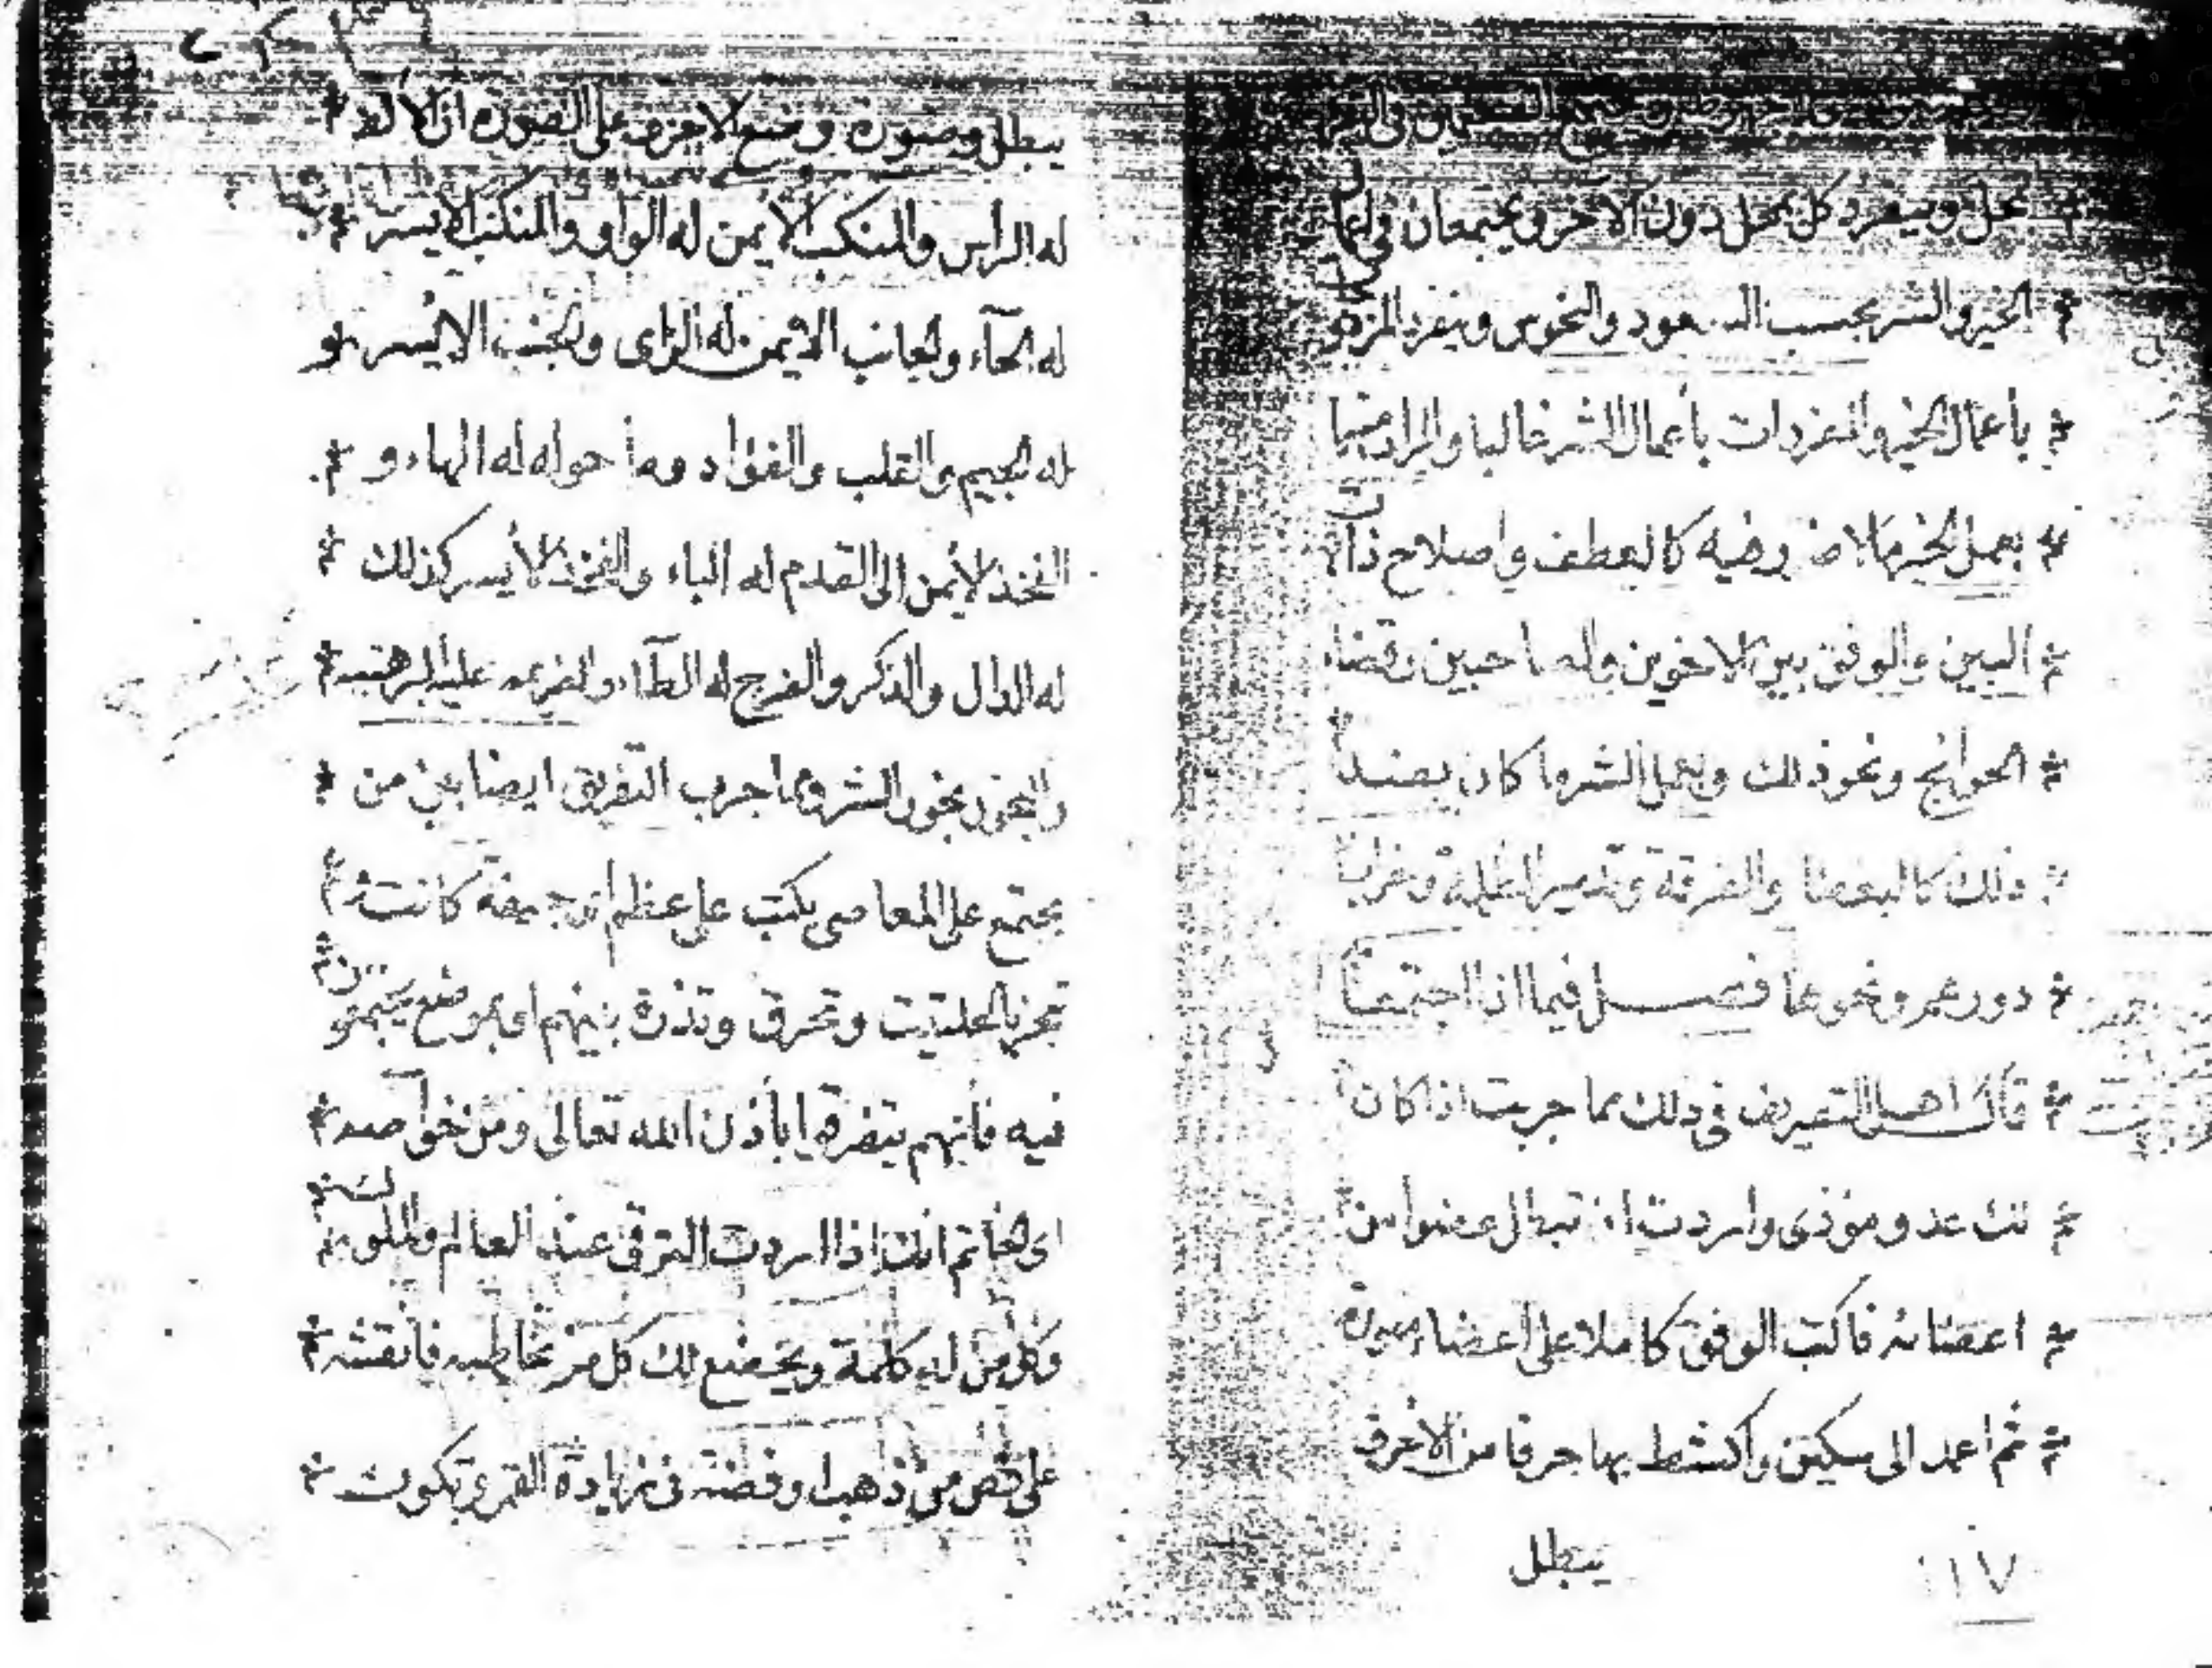 بمحل وينفرد كل بمحل دون الآخر ويجتمعان في اعمال
الخير والشر بحسب السعود والنحوس وينفرد المزدوجات
بأعمال الخير والمفردات بأعمال الشر غالبا والمراد منها
بعمل الخير مالا ضرر فيه كالعطف واصلاح ذات
البين والوفق بين الاخوين والصاحبين وقضاء
الحوائج ونحو ذلك وبعمل الشر ما كان بضد
ذلك كالبغضا والفرقة وتدمير الظلمة وخراب
دورهم ونحوها فصل فيما اذا اجتمعتا
قال اهل التصريف في ذلك مما جربت اذا كان
لك عدو موذى واردت ان تبطل عضوا من
اعضائه فاكتب الوفق كاملا على اعضاء صورة
ثم اعمد الى سكين واكشط بها حرفا من الاحرف
يبطل
١٧
يبطل وصورة وضع الاحرف على الصورة ان الالف
له الرأس والمنكب الأيمن له الواو والمنكب الأيسر
له الحآء والجانب الأيمن له الزاى والجنب الايسر
له الجيم والقلب والفؤاد وما حوله له الهاء و
الفخذ الأيمن الى القدم له الباء والفخذ الأيسر كذلك
له الدال والذكر والفرج له الطآء والعزيمة عليه البرهتيه
والبخور بخور الشر ومما جرب التفريق ايضا بين من
يجتمع على المعاصى يكتب على عظم اى جيفة كانت
تبخر بالحلتيت وتحرق وتذرة بينهم او بموضع يجتمعون
فيه فأنهم يتفرقوا بأذن الله تعالى ومن خواصه
اى الخاتم انك اذا اردت الترقى عند العالم والملوك
وكل من له كلمة ويخضع لك كل من تخاطبه فأنقشه
على فص من ذهب او فضة فى زيادة القمر وتكون